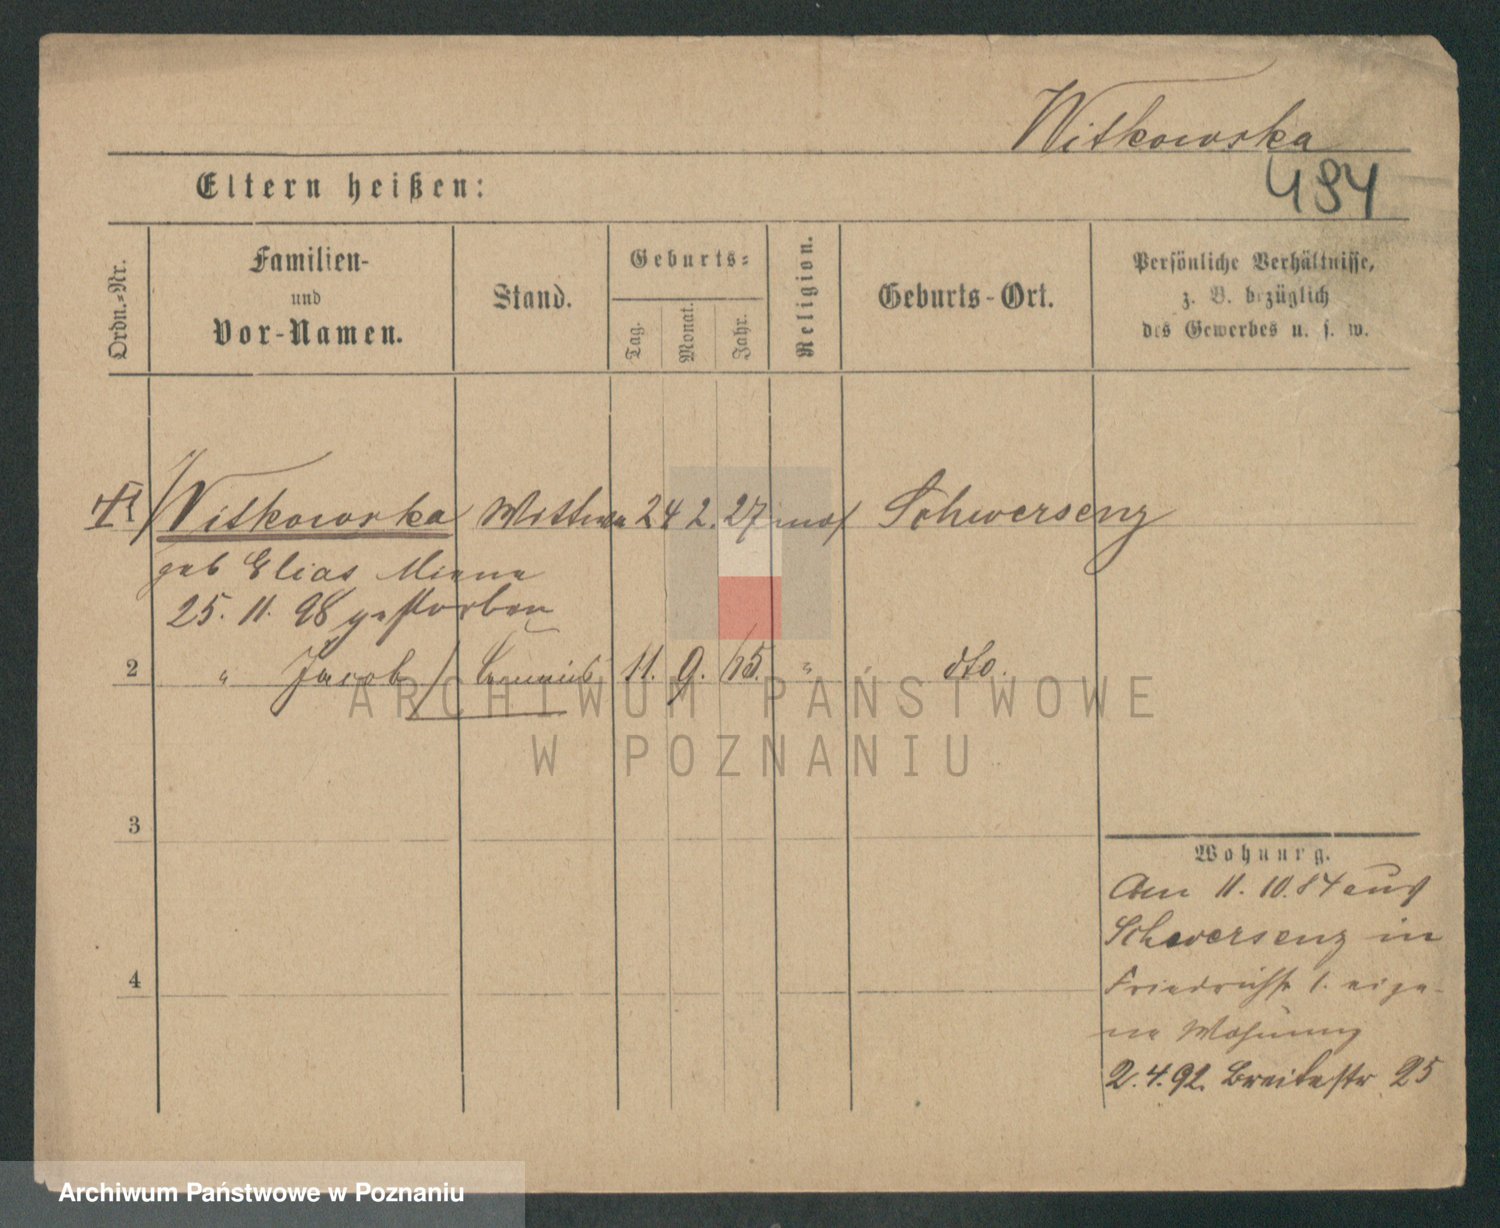 Witkowska
494
Eltern heißen:
Ordn.=Nr.
Familien-
und
Vor-Namen.
Stand.
Geburts=
Tag.
Monat.
Jahr.
Religion.
Geburts-Ort.
Persönliche Verhältnisse,
z. B. bezüglich
des Gewerbes u. s. w.
Witkowska Wittwe 24 2. 27 mos Schwersenz
geb Elias Miene
25. 11. 98 gestorben
2 " Jacob 11. 9. " dto.
3
4
Wohnung.
Am 11. 10. 84 aus
Schwersenz in
Friedrichstr 1. eige-
ne Wohnung
2. 4. 92. Breitestr 25
ARCHIWUM PAŃSTWOWE
W POZNANIU
Archiwum Państwowe w Poznaniu